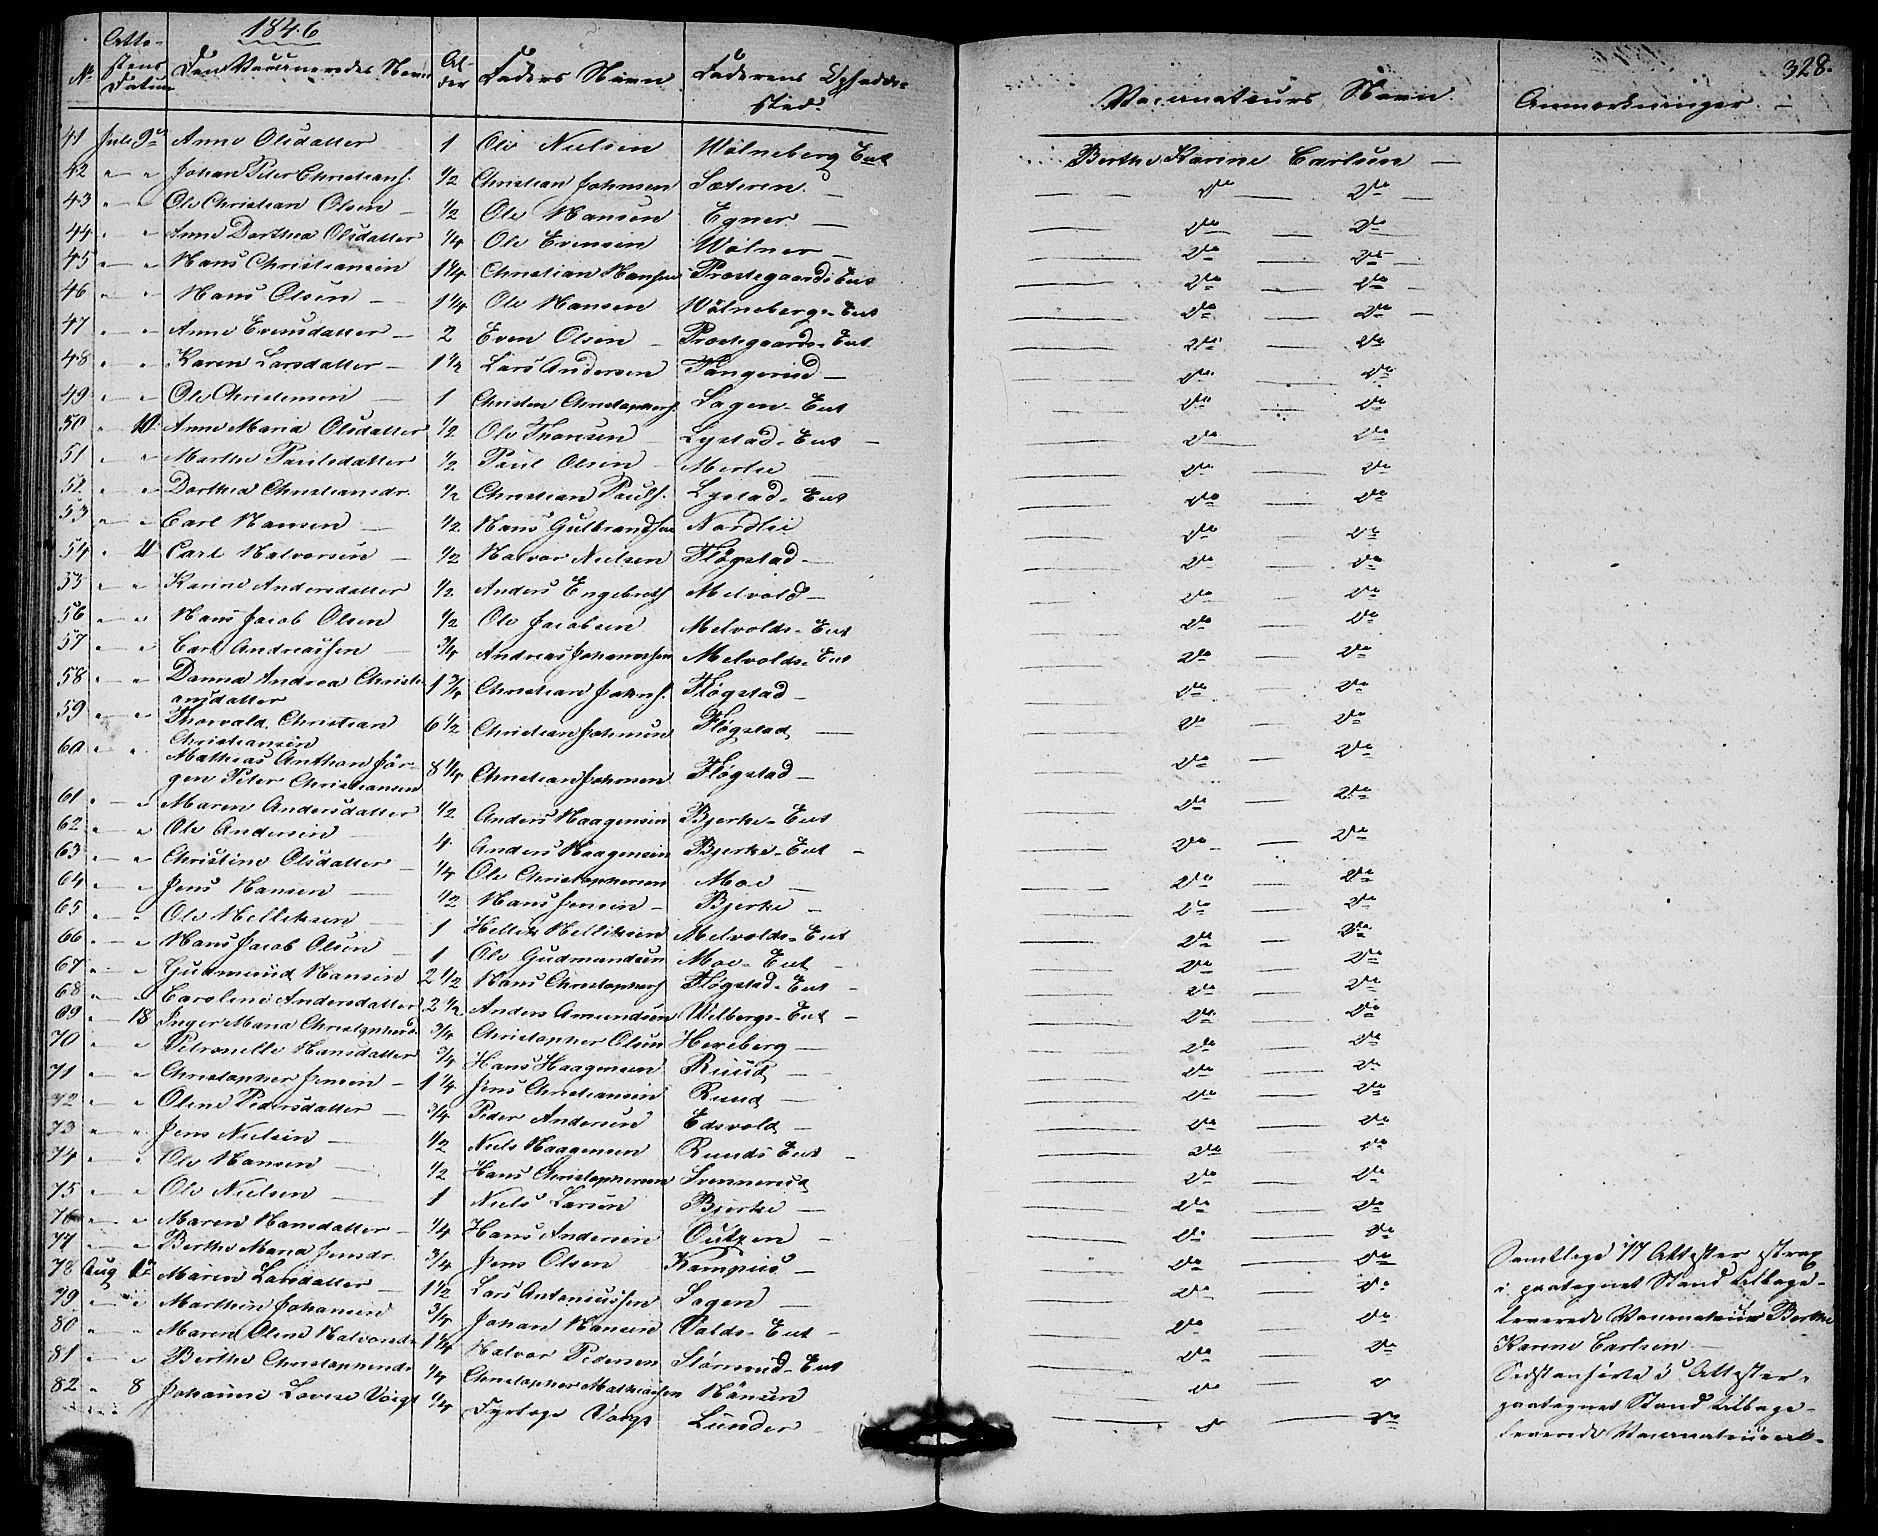 1846
328.
No Attestens Datum Den Vaccineredes Navn Alder Faders Navn Faderens Opholdssted Vaccinateurs Navn. Anmerkninger. -
41 Juli 9de Anne Olsdatter 1 Ole Nielsen Wølneberg Eie Berthe Karine Carlsen -
42 " " Johan Peter Christians. 1/2 Christian Johnsen Sæteren - do do
43 " " Ole Christian Olsen 1/2 Ole Hansen Egner - do do
44 " " Anne Dorthea Olsdatter 1/4 Ole Evensen Wølner - do do
45 " " Hans Christiansen 1 1/4 Christian Hansen Præstegaards Eie do do
46 " " Hans Olsen 1 1/4 Ole Hansen Wølnebergs-Eie do do
47 " " Anne Evensdatter 2 Even Olsen Præstegaards-Eie do do
48 " " Karen Larsdatter 1 1/2 Lars Andersen Tangerud do do
49 " " Ole Christensen 1 Christen Christophers. Hagen-Eie do do
50 " 10 Anne Maria Olsdatter 1/2 Ole Hansen Lystad-Eie do do
51 " " Marthe Paulsdatter 1/2 Paul Olsen Mertie do do
52 " " Dorthea Christiansdr. 1/2 Christian Pauls. Lystad-Eie do do
53 " " Carl Hansen 1/2 Hans Gulbrandsen Nordlie do do
54 " 11 Carl Halvorsen 1/2 Halvor Nielsen Fløgstad do do
55 " " Karine Andersdatter 1/2 Anders Engebreths. Melvold do do
56 " " Hans Jacob Olsen 1/2 Ole Jacobsen Melvolds-Eie do do
57 " " Carl Andreassen 3/4 Andreas Johannessen Melvolds-Eie do do
58 " " Danna Andrea Christi- 1 3/4 Christian Johns. Fløgstad do do
ansdatter
59 " " Thorvald Christian 6 1/2 Christian Johnsen Fløgstad do do
Christiansen
60 " " Mathias Anthon Jør- 8 1/4 Christian Johnsen Fløgstad do do
gen Peter Christiansen
61 " " Maren Andersdatter 1/2 Anders Haagensen Bjerke-Eie do do
62 " " Ole Andersen 4 Anders Haagensen Bjerke-Eie do do
63 " " Christine Olsdatter 1/4 Ole Christophersen Moe do do
64 " " Jens Hansen 1/2 Hans Jensen Bjerke do do
65 " " Ole Helliksen 1 Hellik Helliksen Melvolds-Eie do do
66 " " Hans Jacob Olsen 1 Ole Gudmundsen Moe-Eie do do
67 " " Gudmund Hansen 2 1/2 Hans Christophers. Fløgstad-Eie do do
68 " " Caroline Andersdatter 2 1/2 Anders Amundsen Wilbergs-Eie do do
69 " 18 Inger Maria Christophersd. 3/4 Christopher Olsen Hexeberg do do
70 " " Petronelle Hansdatter 3/4 Hans Haagensen Ruud do do
71 " " Christopher Jensen 1 1/4 Jens Christiansen Ruud do do
72 " " Oline Pedersdatter 3/4 Peder Andersen Edsvold do do
73 " " Jens Nielsen 1/2 Niels Haagensen Ruuds Eie do do
74 " " Ole Hansen 1/2 Hans Christophersen Svennerud do do
75 " " Ole Nielsen 1 Niels Larsen Bjerke do do
76 " " Maren Hansdatter 1/4 Hans Andersen Outzen do do
77 " " Berthe Maria Jensdr. 3/4 Jens Olsen Kampus do do
78 Aug 1ste Maren Larsdatter 1 1/2 Lars Antoniussen Hagen do do
79 " " Marthin Johansen 3/4 Johan Hansen Valds-Eie do do
80 " " Maren Oline Halvorsdr. 1 1/4 Halvor Pedersen Størmrud-Eie do do
81 " " Berthe Christophersdr. 1/4 Christopher Mathiassen Hønsen do do
82 " 8 Johanne Lovise Voigt 1/4 Voigt Lunder do do
Samtlige 77 Attester strax
i paategnet Stand tilbage-
leverede Vaccinatrice Berthe
Karine Carlsen -
Sidstanførte 5 Attester,
paategnet Stand tilbage-
leverede